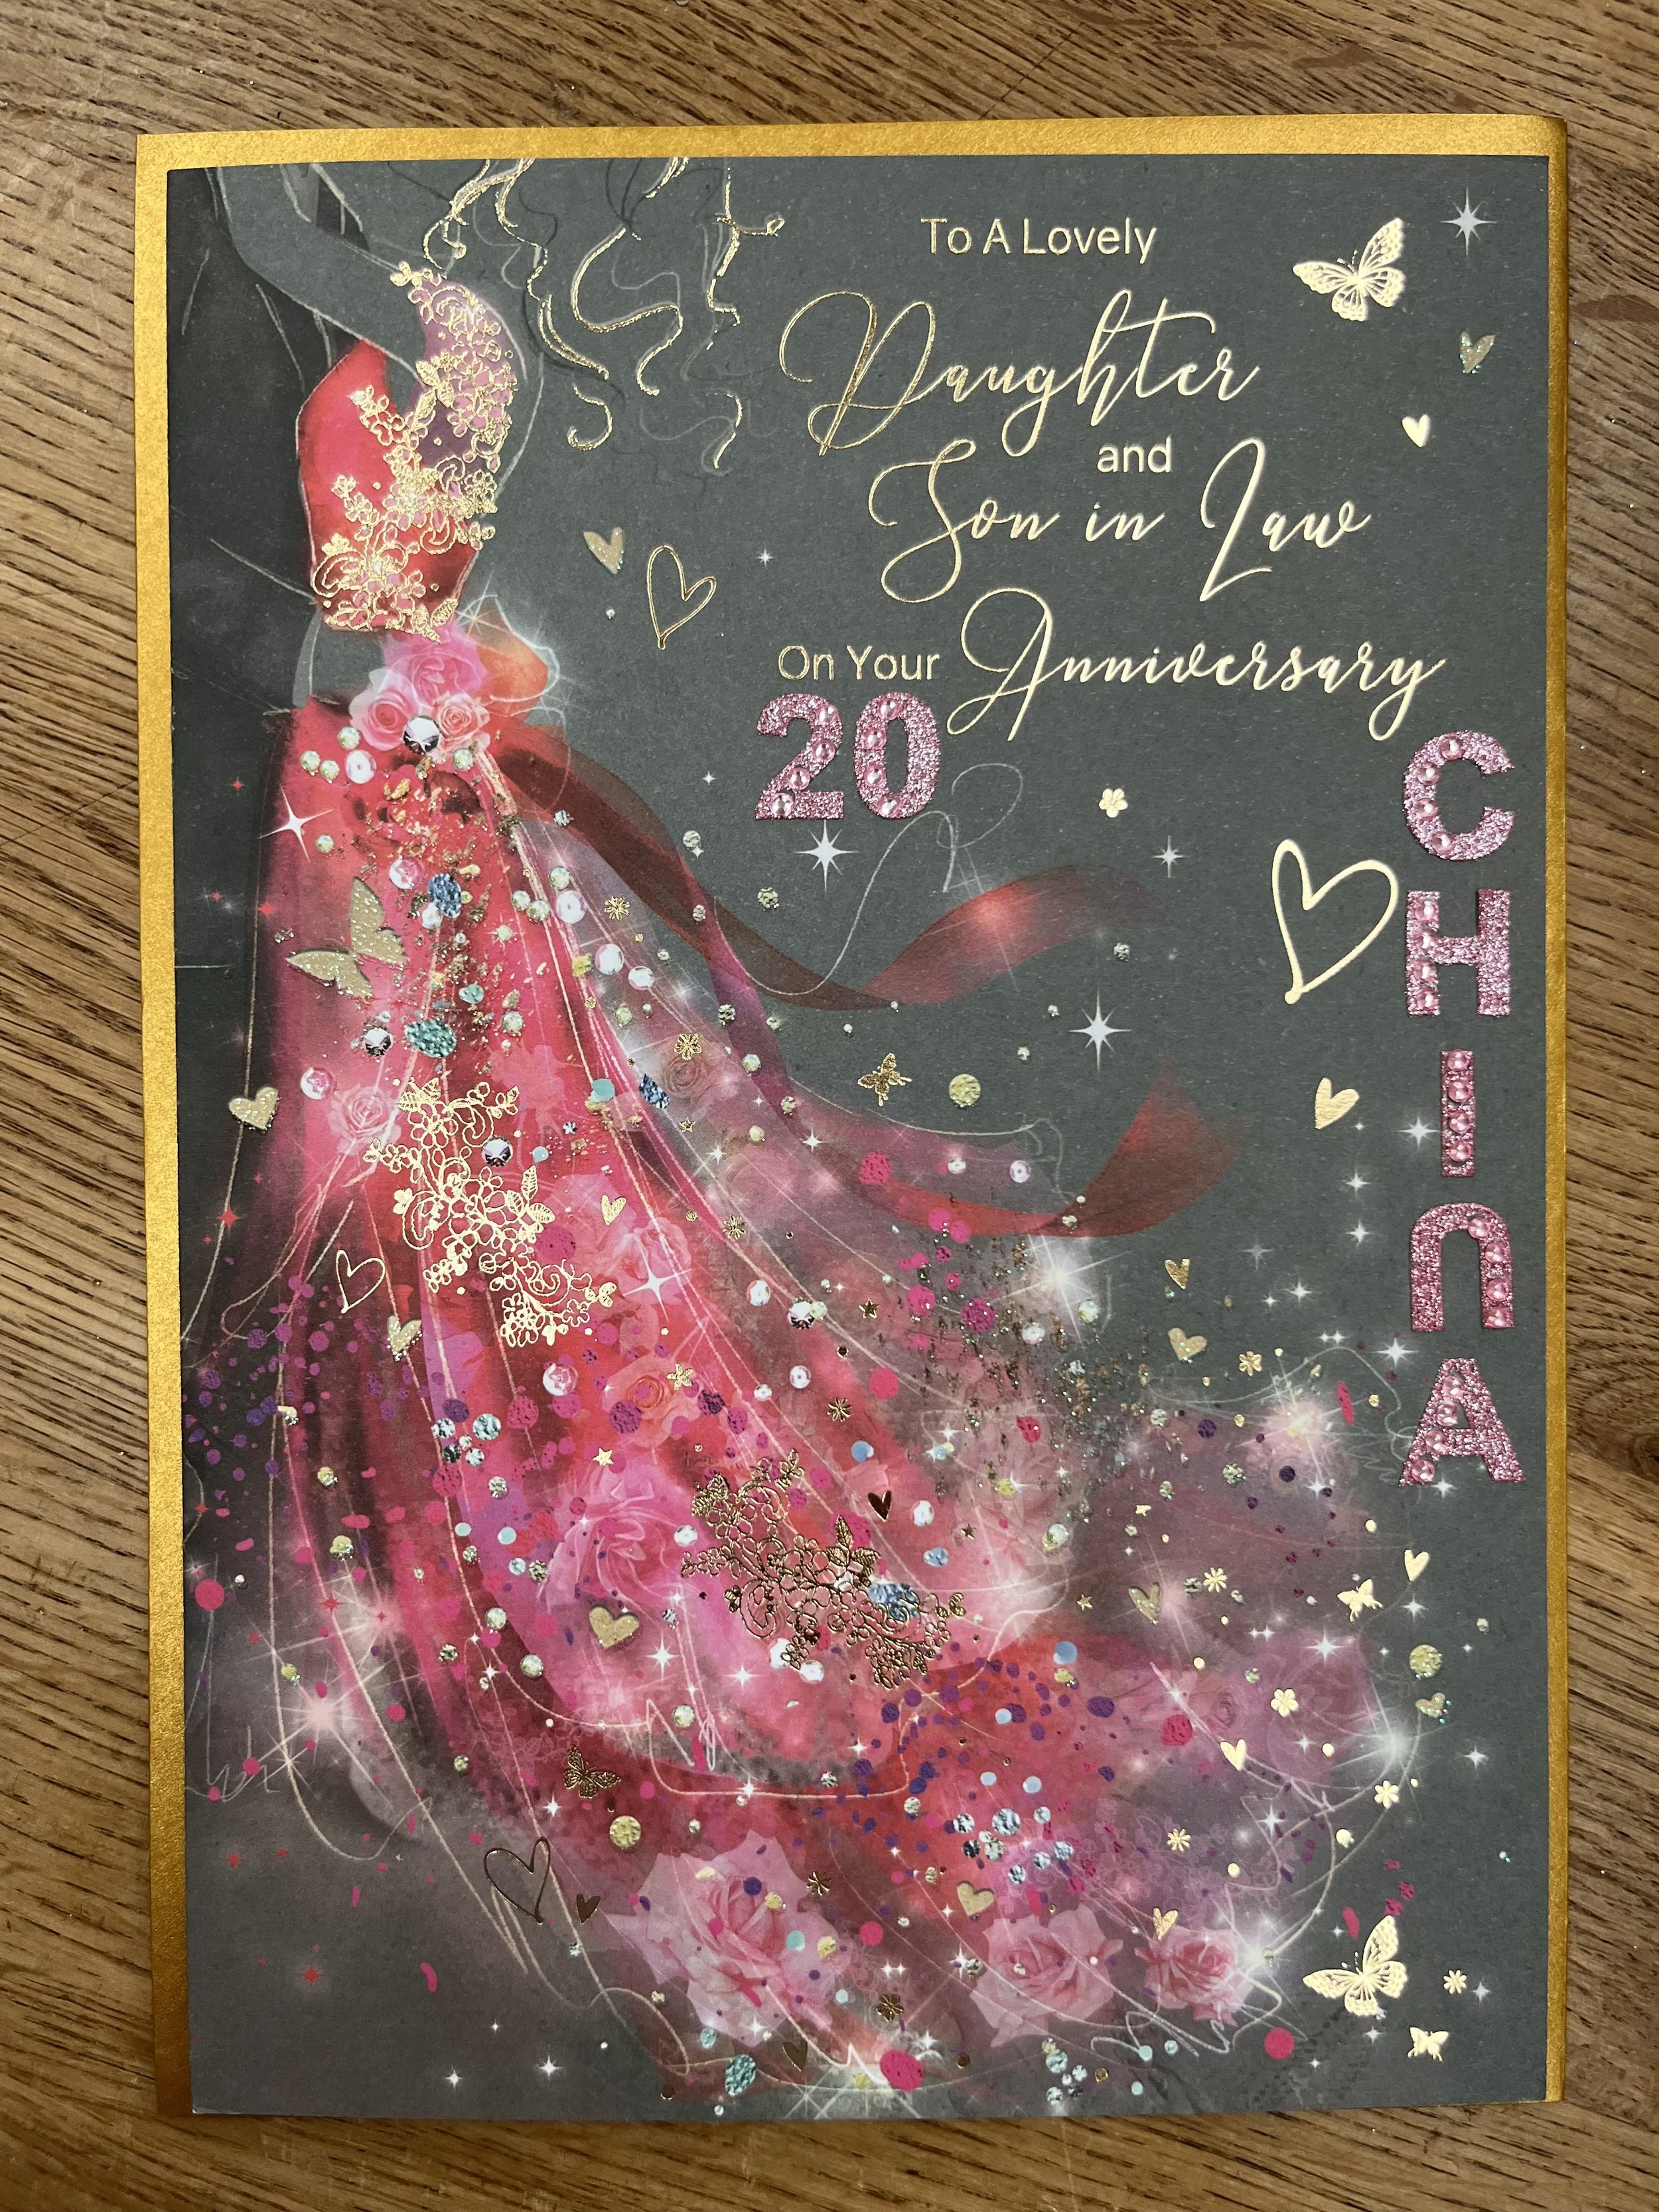 To A Lovely
Daughter
and
Son in Law
On Your Anniversary
20
CHINA